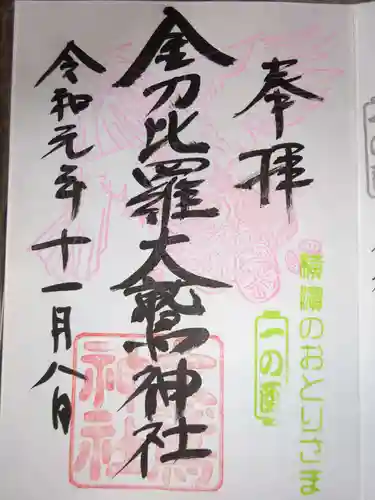 奉拝
横濱のおとりさま
一の酉
金刀比羅大鷲神社
令和元年十一月八日